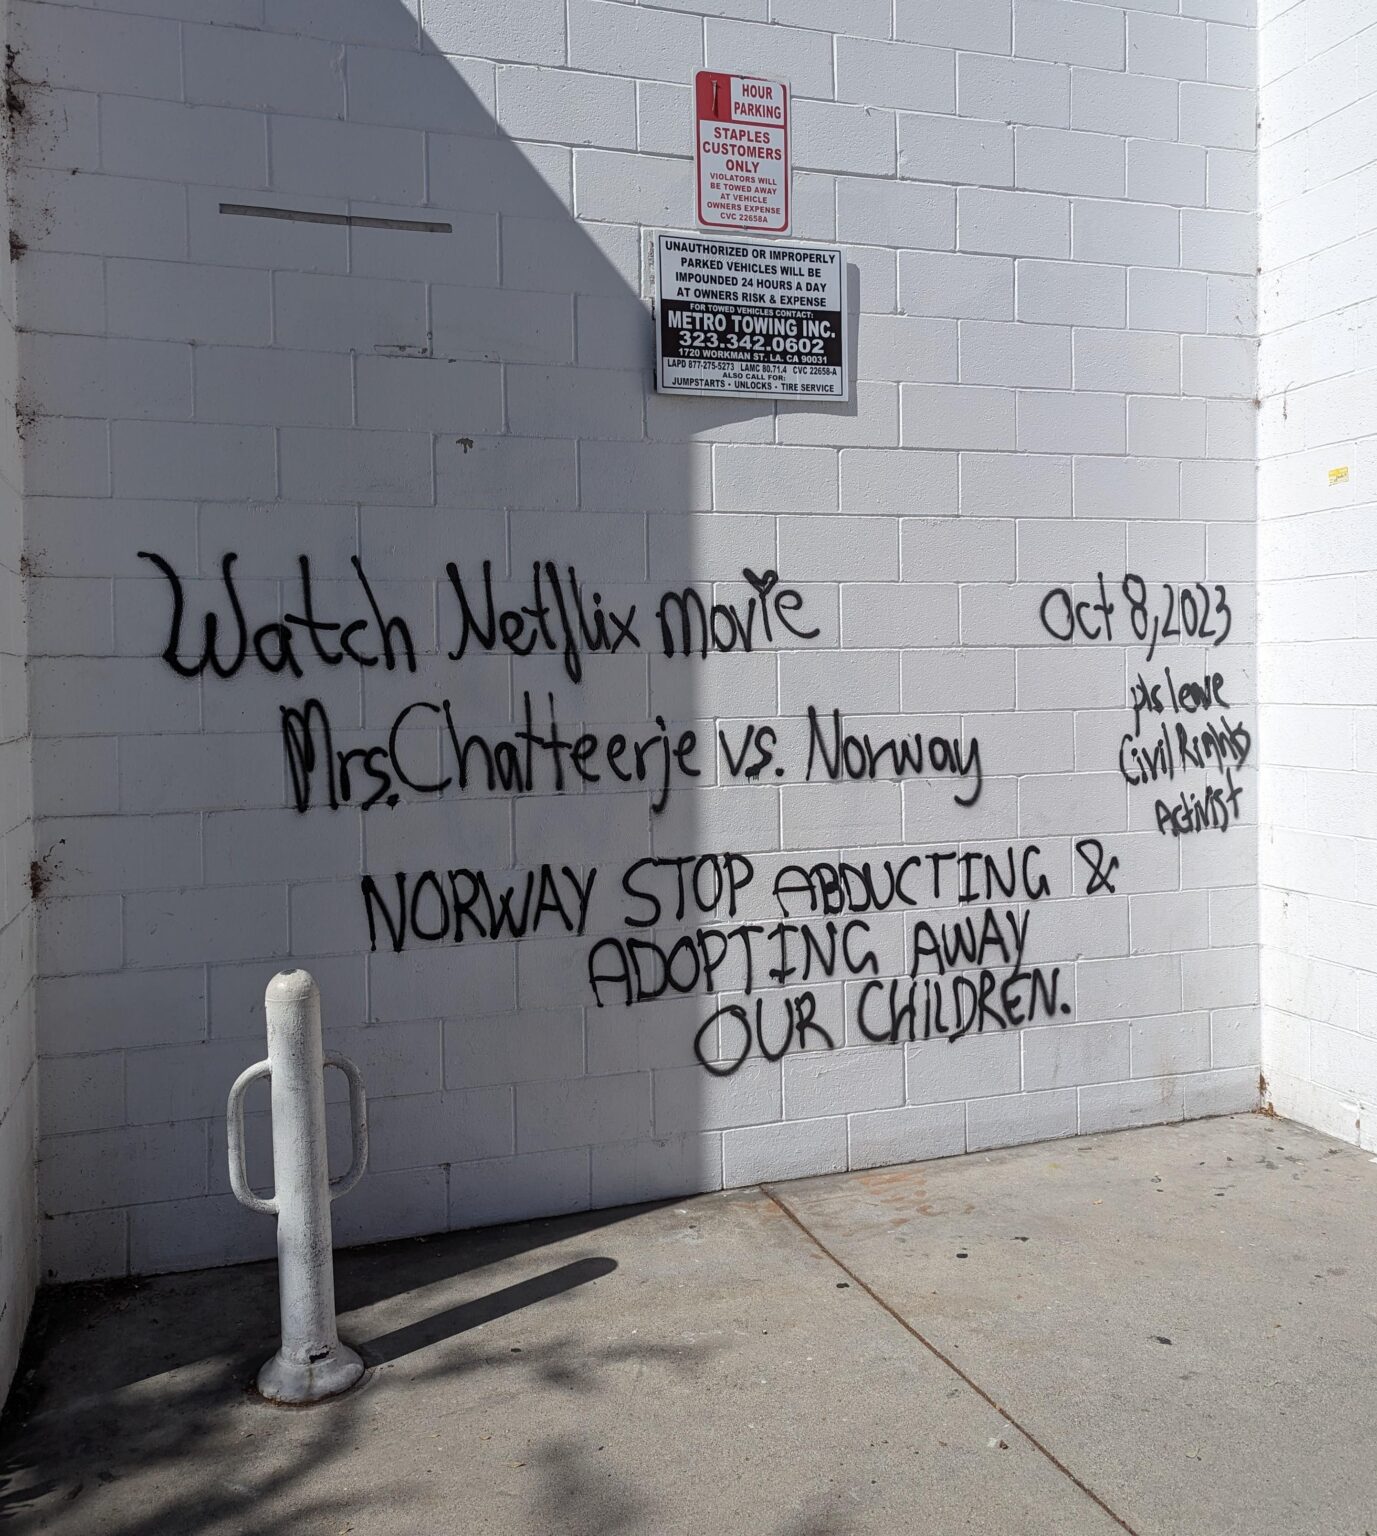 1 HOUR
PARKING
STAPLES
CUSTOMERS
ONLY
VIOLATORS WILL
BE TOWED AWAY
AT VEHICLE
OWNERS EXPENSE
CVC 22658A
UNAUTHORIZED OR IMPROPERLY
PARKED VEHICLES WILL BE
IMPOUNDED 24 HOURS A DAY
AT OWNERS RISK & EXPENSE
FOR TOWED VEHICLES CONTACT:
METRO TOWING INC.
323.342.0602
1720 WORKMAN ST. LA. CA 90031
LAPD 877-275-5273 LAMC 80.71.4 CVC 22658-A
ALSO CALL FOR:
JUMPSTARTS - UNLOCKS - TIRE SERVICE
Watch Netflix movie
Mrs. Chatteerje vs. Norway
NORWAY STOP ABDUCTING &
ADOPTING AWAY
OUR CHILDREN.
Oct 8, 2023
pls leave
Civil Rights
Activist